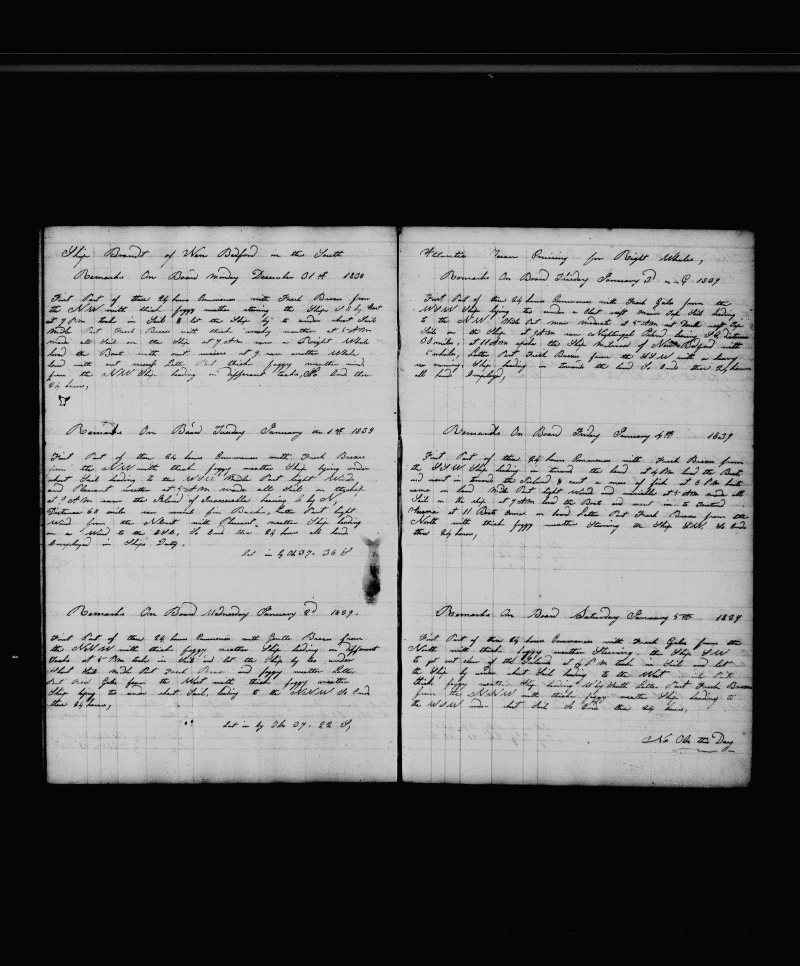 Ship Brandt of New Bedford in the South
Remarks On Board Monday December 31st 1838
First Part of these 24 hours Commences with Fresh Breeze from
the N.W with thick foggy weather steering the Ship S E by East
at 7 P M took in Sail & let the Ship by to under short Sail
Middle Part Fresh Breeze with thick weather at 5 A M
made all Sail on the Ship at 7 A M saw a Right Whale
the Boats with out at 9 saw another Whale
with out Latter Part thick foggy weather wind
from the N.W Ship heading on different tacks, So Ends these
24 hours,
Remarks On Board Tuesday January 1st 1839
First Part of these 24 hours Commences with Fresh Breeze
from the N.W with thick foggy weather Ship lying under
short Sail heading to the W.S.W Middle Part light Winds
and Pleasant weather at 5 A M made all Sail on the ship
at 9 A M saw the Island of Inaccessible bearing E by N
Distance 60 miles Latter Part light
Wind from the with Pleasant weather Ship heading
on a Wind to the So Ends these 24 hours all hands
Employed in Ships Duty.
Lat in by Ob 37-36 S
Remarks On Board Wednesday January 2d 1839.
First Part of these 24 hours Commences with Gentle Breeze from
the N.N.W with thick foggy weather Ship heading on different
Tacks at 5 P M took in Sail and let the Ship by to, under
Short Sail Middle Part Fresh Breeze and foggy weather Latter
Part Fresh Gales from the West with thick foggy weather
Ship lying to under short Sail, heading to the N.N.W So Ends
these 24 hours,
Lat in by Obs 37-22 S,
Atlantic Ocean Cruising for Right Whales,
Remarks On Board January 3d 1839
First Part of these 24 hours Commences with Fresh Gales from the
W.S.W Ship lying to under a Short Sail heading
to the N.W Middle Part more Moderate at 5 A M
Sail on the Ship at 9 A M saw Nightingale Island bearing distance
30 miles, at 11 A M spoke the Ship of New Bedford with
whales, Latter Part Fresh Breeze from the S.S.W with a heavy
sea running, Ship heading in towards the land So Ends these 24 hours
all hands Employed,
Remarks On Board Friday January 4th 1839
First Part of these 24 hours Commences with Fresh Breeze from
the S.S.W Ship heading in toward the land at 4 P M the Boats
and went in toward the Island & cau't a mess of fish at 6 P M boats
came on board Middle Part light Wind and variable at 5 A M made all
Sail on the ship at 7 A M the Boats and went in to
at 11 Boats Came on board Latter Part Fresh Breeze from the
North with thick foggy weather Steering the Ship S.W. So Ends
these 24 hours,
Remarks On Board Saturday January 5th 1839
First Part of these 24 hours Commences with Fresh Gales from the
North with thick foggy weather Steering the Ship S.W
to get out clear of the Islands at 6 P M took in Sail and let
the Ship by under short Sail heading to the West
thick foggy weather Ship heading W by South Latter Part Fresh Breeze
from the N.N.W with thick foggy weather Ship heading to
the W.S.W under short Sail So Ends these 24 hours,
No Obs this Day